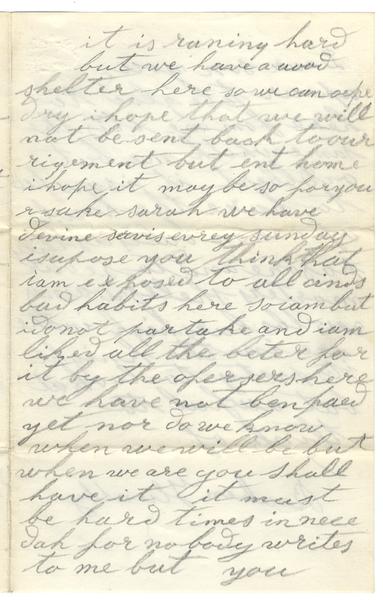 it is raning hard
but we have a wood
shelter here so we can cepe
dry i hope that we will
not be sent back to our
rigement but ent home
i hope it may be so for you
r sake sarah we have
devine savis evrey sunday
i supose you think that
iam exposed to all cinds
bad habits here so iam but
i do not partake and iam
liked all the beter for
it by the ofersers here
we have not ben paed
yet nor do we know
when we will be but
when we are you shall
have it it must
be hard times in nece
dah for no body writes
to me but you